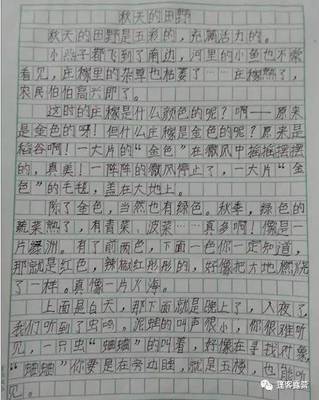 秋天的田野
秋天的田野是五彩的，充满活力的。
小燕子都飞到了南边，河里的小鱼也不常
看见，庄稼里的杂草也枯萎了……庄稼熟了，
农民伯伯高兴即了。
这时的庄稼是什么颜色的呢？啊——原来
是金色的呀！但什么庄稼是金色的呢？原来是
稻谷啊！一大片的“金色”在微风中摇摇摆摆
的，真美！一阵阵的微风停止了，一大片“金
色”的毛毯，盖在大地上。
除了金色，当然也有绿色。秋季，绿色的
蔬菜熟了，有青菜、波菜……真多啊！像是一
片绿洲。有了前两色，下面一色你一定知道，
那就是红色，辣椒红彤彤的，好像把大地燃烧
了一样。真像一片火海。
上面是白天，那下面就是晚上了，入夜了，
我们听到了虫鸣。泥蛐的叫声很小，你很难听
见，一只虫“蛐蛐”的叫着，好像在寻找对象，
“蛐蛐”你要是在旁边睡，就是五楼，也能听
见。
蓬客露营